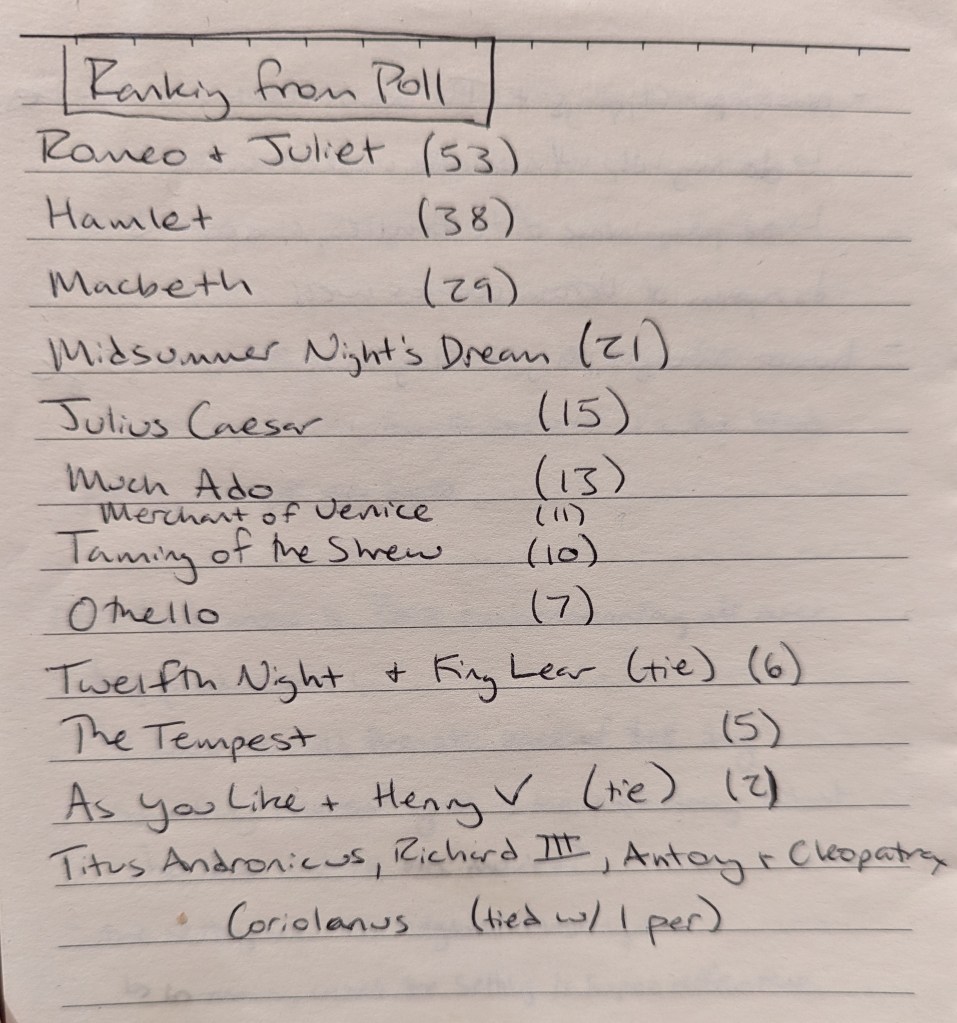 Ranking from Poll
Romeo + Juliet (53)
Hamlet (38)
Macbeth (29)
Midsummer Night's Dream (21)
Julius Caesar (15)
Much Ado (13)
Merchant of Venice (11)
Taming of the Shrew (10)
Othello (7)
Twelfth Night + King Lear (tie) (6)
The Tempest (5)
As you Like + Henry V (tie) (2)
Titus Andronicus, Richard III, Antony + Cleopatra
Coriolanus (tied w/ 1 per)